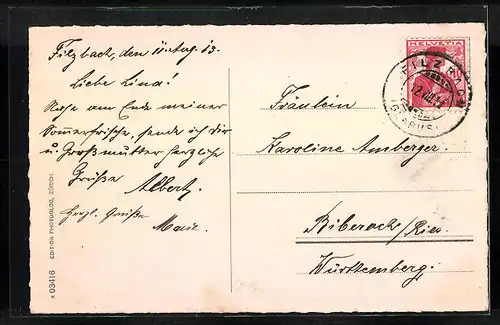 Filzbach, den 11. Aug. 13.
Liebe Lina!
Nahe am Ende meiner
Sommerfrische, sende ich dir
u. Großmutter herzliche
Grüße Albert.
Herzl. Grüße
Marie.
HELVETIA
FILZBACH
(GLARUS)
Fräulein
Karoline Amberger.
Biberach/Riss.
Württemberg.
EDITION PHOTOGLOB, ZÜRICH
03416